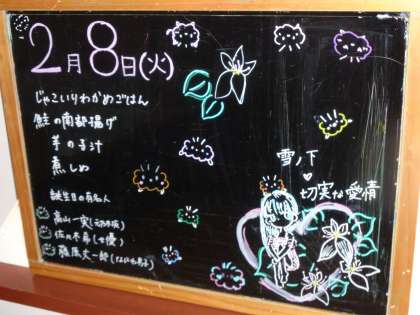 2月8日(火)
じゃこいりわかめごはん
鮭の南部揚げ
芋の子汁
煮しめ
雪ノ下
切実な愛情
誕生日の有名人
高山一実(乃木坂)
佐々木希(女優)
藤原丈一郎(なにわ男子)